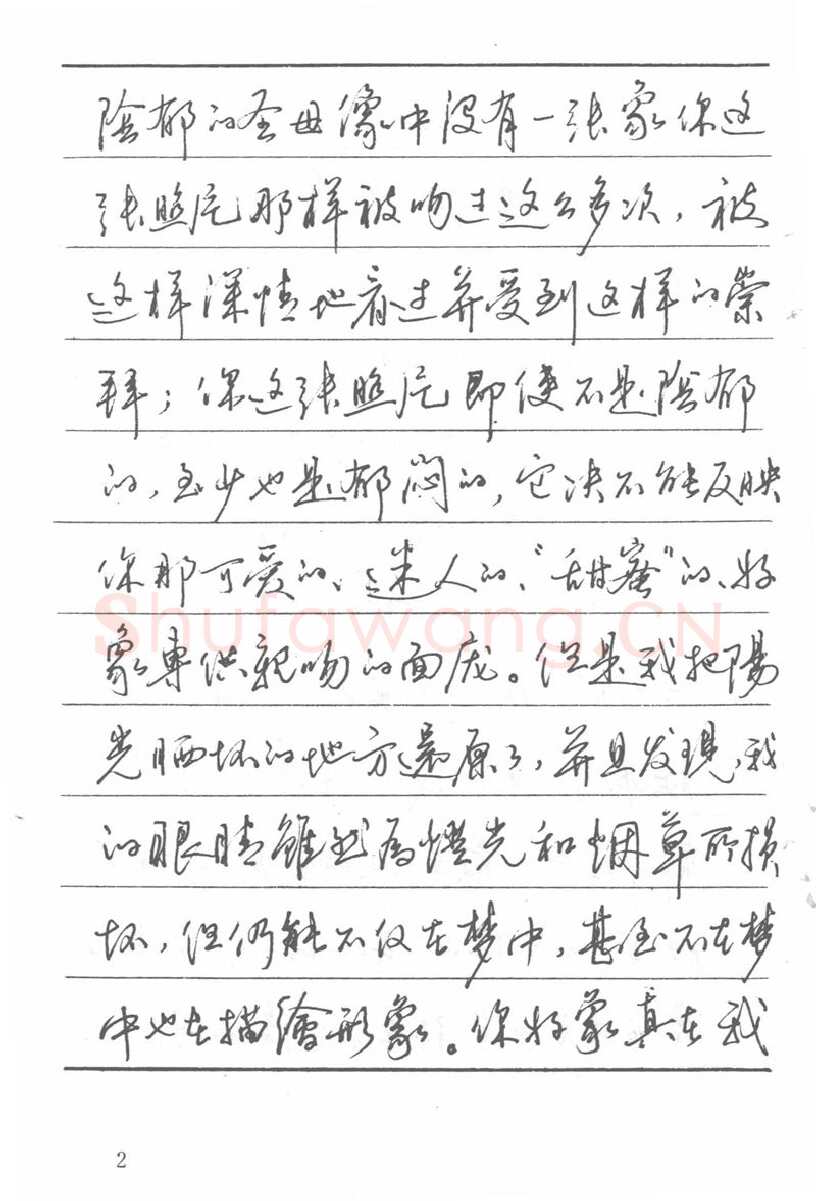 陰郁的圣母像中没有一张象你这
张照片那样被吻过这么多次，被
这样深情地看过并受到这样的崇
拜；你这张照片即使不是陰郁
的，至少也是郁闷的，它决不能反映
你那可爱的、迷人的、“甜蜜”的、好
象專供親吻的面庞。但是我把陽
光晒坏的地方還原了，并且发現，我
的眼睛雖然為燈光和烟草所损
坏，但仍能不仅在梦中，甚至不在梦
中也在描繪形象。你好象真在我
Shufawang.CN
2